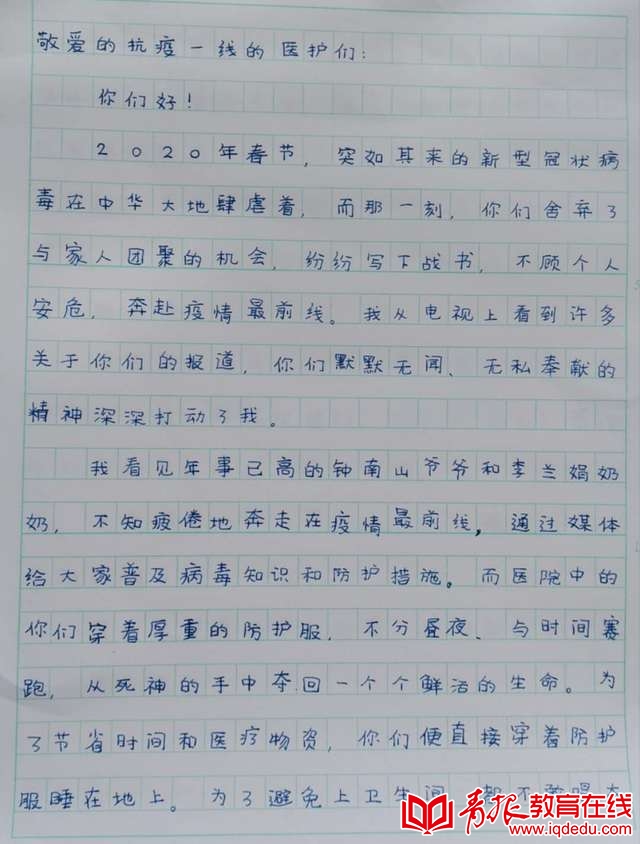 敬爱的抗疫一线的医护们：
你们好！
2020年春节，突如其来的新型冠状病
毒在中华大地肆虐着，而那一刻，你们舍弃了
与家人团聚的机会，纷纷写下战书，不顾个人
安危，奔赴疫情最前线。我从电视上看到许多
关于你们的报道，你们默默无闻、无私奉献的
精神深深打动了我。
我看见年事已高的钟南山爷爷和李兰娟奶
奶，不知疲倦地奔走在疫情最前线，通过媒体
给大家普及病毒知识和防护措施。而医院中的
你们穿着厚重的防护服，不分昼夜、与时间赛
跑，从死神的手中夺回一个个鲜活的生命。为
了节省时间和医疗物资，你们便直接穿着防护
服睡在地上。为了避免上卫生间，都不敢喝水
青报教育在线
www.iqdedu.com